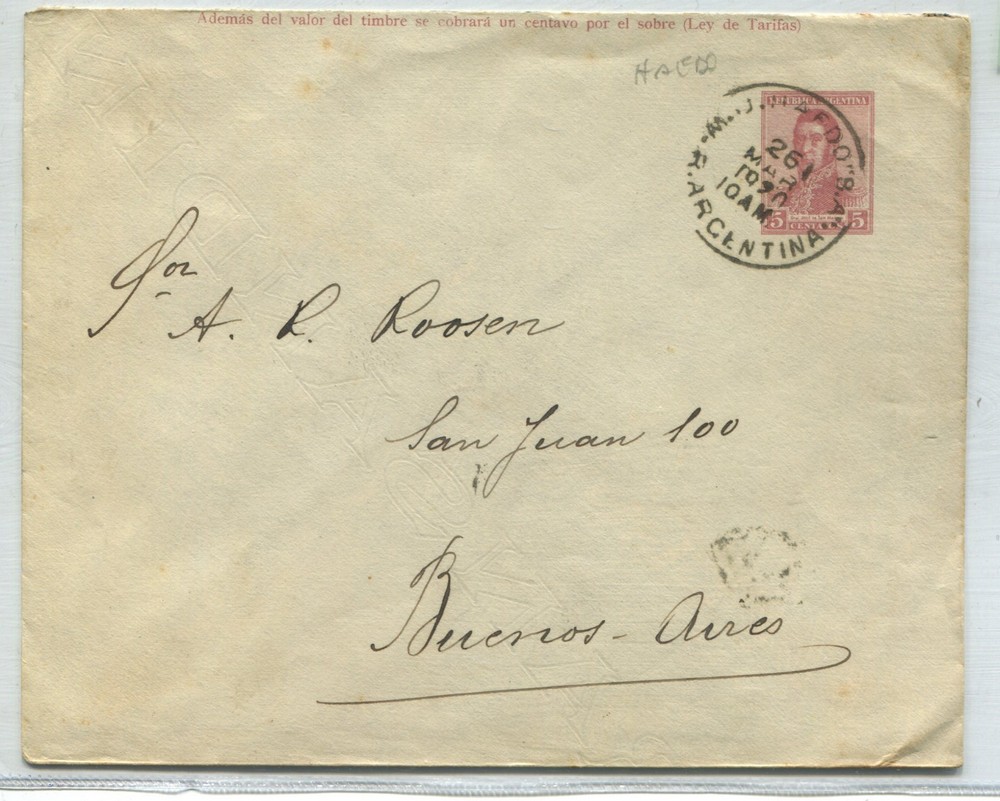 Además del valor del timbre se cobrará un centavo por el sobre (Ley de Tarifas)
HAEDO
REPUBLICA ARGENTINA
5 CENTAVOS 5
M.J. HAEDO "B.A."
26
MAR
1920
10AM
R. ARGENTINA
Sor
A. R. Roosen
San Juan 100
Buenos-Aires